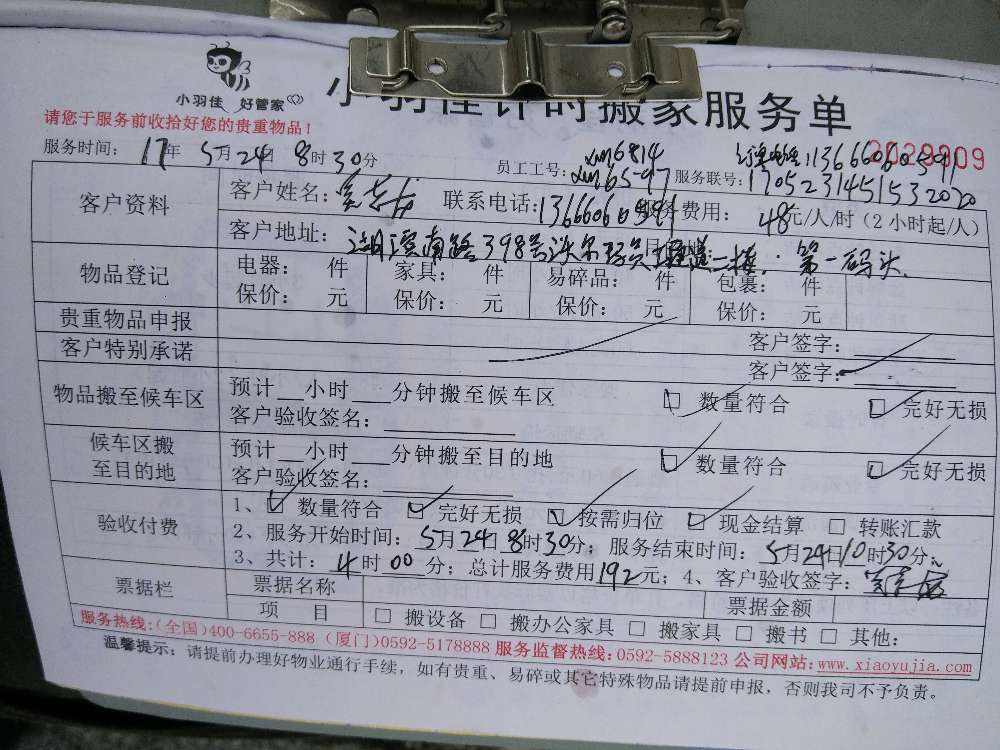 小羽佳 好管家
小羽佳计时搬家服务单
请您于服务前收拾好您的贵重物品！
服务时间： 17年 5月 24日 8时 30分
员工工号： xm6814
xm6547 服务联号：1705231451532020
客户资料 客户姓名： 联系电话：13666060591 服务费用： 48元/人/时（2小时起/人）
客户地址： 湖滨南路398号沃尔玛 二楼. 第一码头
物品登记 电器： 件 家具： 件 易碎品： 件 包裹： 件
保价： 元 保价： 元 保价： 元 保价： 元
贵重物品申报 客户签字：
客户特别承诺 客户签字：
物品搬至候车区 预计__小时___分钟搬至候车区 □ 数量符合 □ 完好无损
客户验收签名：
候车区搬至目的地 预计__小时___分钟搬至目的地 □ 数量符合 □ 完好无损
客户验收签名：
验收付费 1、☑ 数量符合 ☑ 完好无损 ☑ 按需归位 ☑ 现金结算 □ 转账汇款
2、服务开始时间：5月24日8时30分；服务结束时间：5月24日10时30分
3、共计：4时00分；总计服务费用192元；4、客户验收签字：
票据栏 票据名称 票据金额
项 目 □ 搬设备 □ 搬办公家具 □ 搬家具 □ 搬书 □ 其他：
服务热线：(全国)400-6655-888（厦门）0592-5178888 服务监督热线：0592-5888123 公司网站：www.xiaoyujia.com
温馨提示：请提前办理好物业通行手续，如有贵重、易碎或其它特殊物品请提前申报，否则我司不予负责。